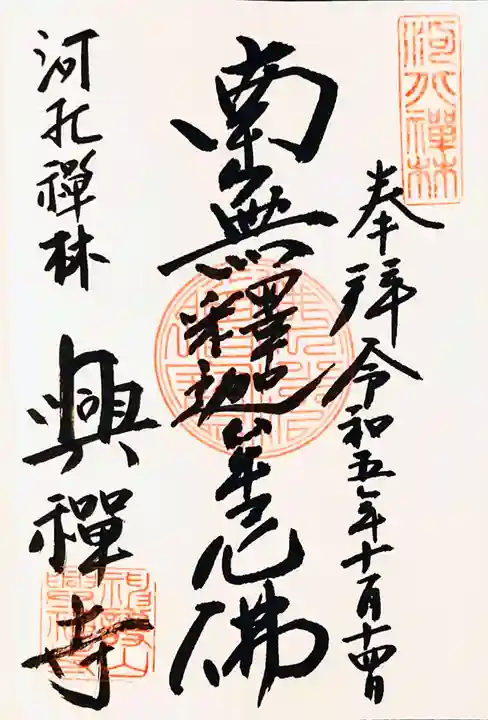 河北禪林
奉拝 令和五年十月十四日
南無釋迦牟尼佛
河北禪林 興禪寺